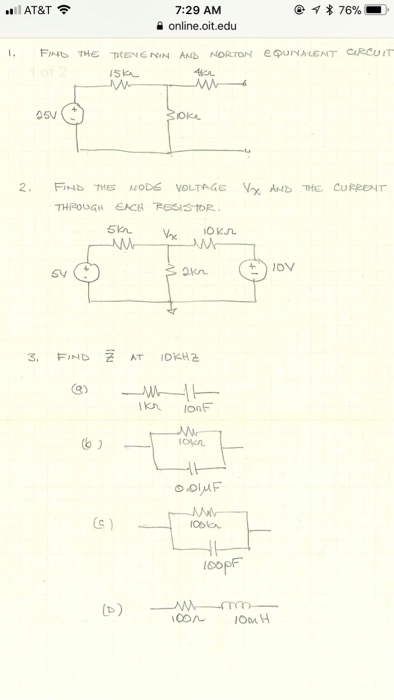 AT&T 7:29 AM 76%
online.oit.edu
1 of 2
1. FIND THE THEVENIN AND NORTON EQUIVALENT CIRCUIT
15kΩ 4kΩ
25V 10kΩ
2. FIND THE NODE VOLTAGE Vx AND THE CURRENT
THROUGH EACH RESISTOR.
5kΩ Vx 10kΩ
5V 2kΩ 10V
3. FIND Z AT 10KHZ
(a)
1kΩ 10nF
(b)
10kΩ
0.01μF
(c)
100kΩ
100pF
(D)
100Ω 10mH